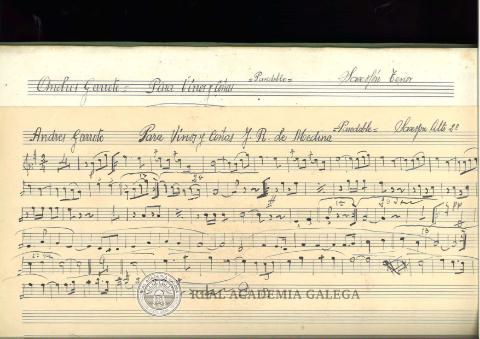 Andres Garrote = Para Vinos y Coñas =Pasodoble= Saxofón Tenor
Andres Garrote Para Vinos y Coñas J. R. de Medina =Pasodoble= Saxofon Alto 2º
REAL ACADEMIA GALEGA